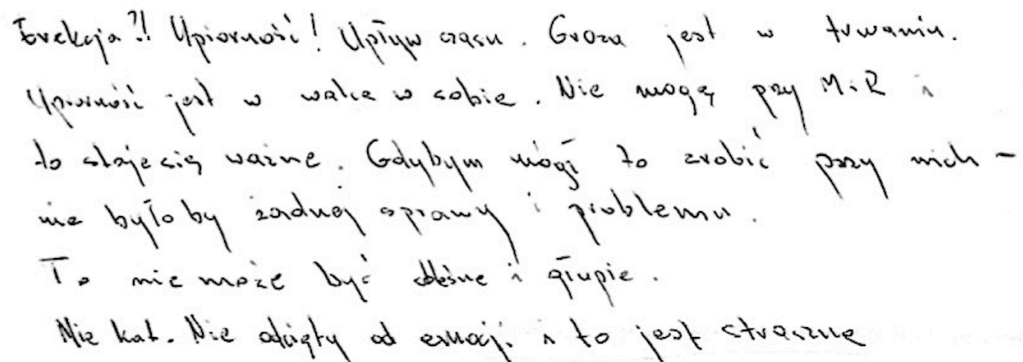 Erekcja?!! Upiorność! Upływ czasu. Groza jest w trwaniu.
Upiorność jest w walce w sobie. Nie mogę przy M i R i
to staje się ważne. Gdybym mógł to zrobić przy nich -
nie byłoby żadnej sprawy i problemu.
To nie może być i głupie.
Nie kat. Nie odcięty od emocji i to jest straszne